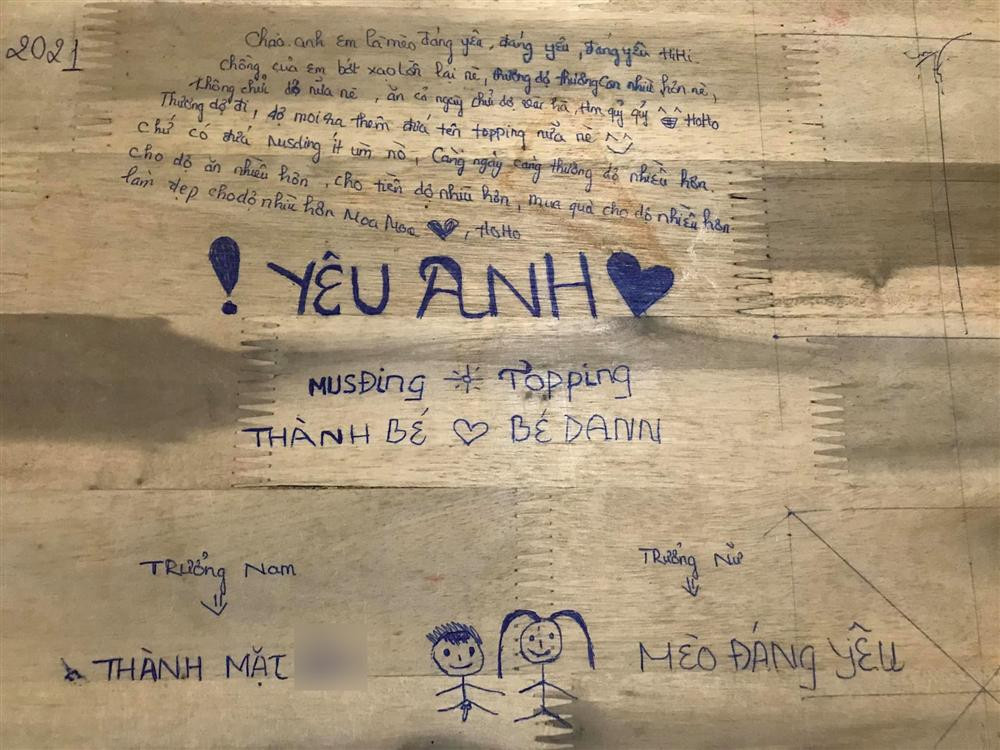 2021
Chào anh em là mèo đáng yêu, đáng yêu, đáng yêu HiHi.
chồng của em bớt xạo lồn lại nè, thương dợ thương con nhìu hơn nè,
không chửi dợ nữa nè, ăn cả ngày chửi dợ hà, Hm quỷ quỷ HoHo
Thương dợ đi, dợ moi ra thêm đứa tên topping nữa nè
chứ có đứa Musding ít ùm nò, Càng ngày càng thương dợ nhiều hơn.
cho dợ ăn nhiều hơn, cho tiền dợ nhìu hơn, mua quà cho dợ nhiều hơn
làm đẹp cho dợ nhìu hơn Moa Moa, HoHo
! YÊU ANH
MUSĐing Topping
THÀNH BÉ BÉ DANN
TRưởng Nam
TRưởng Nữ
THÀNH MẶT
MÈO ĐÁNG YÊU